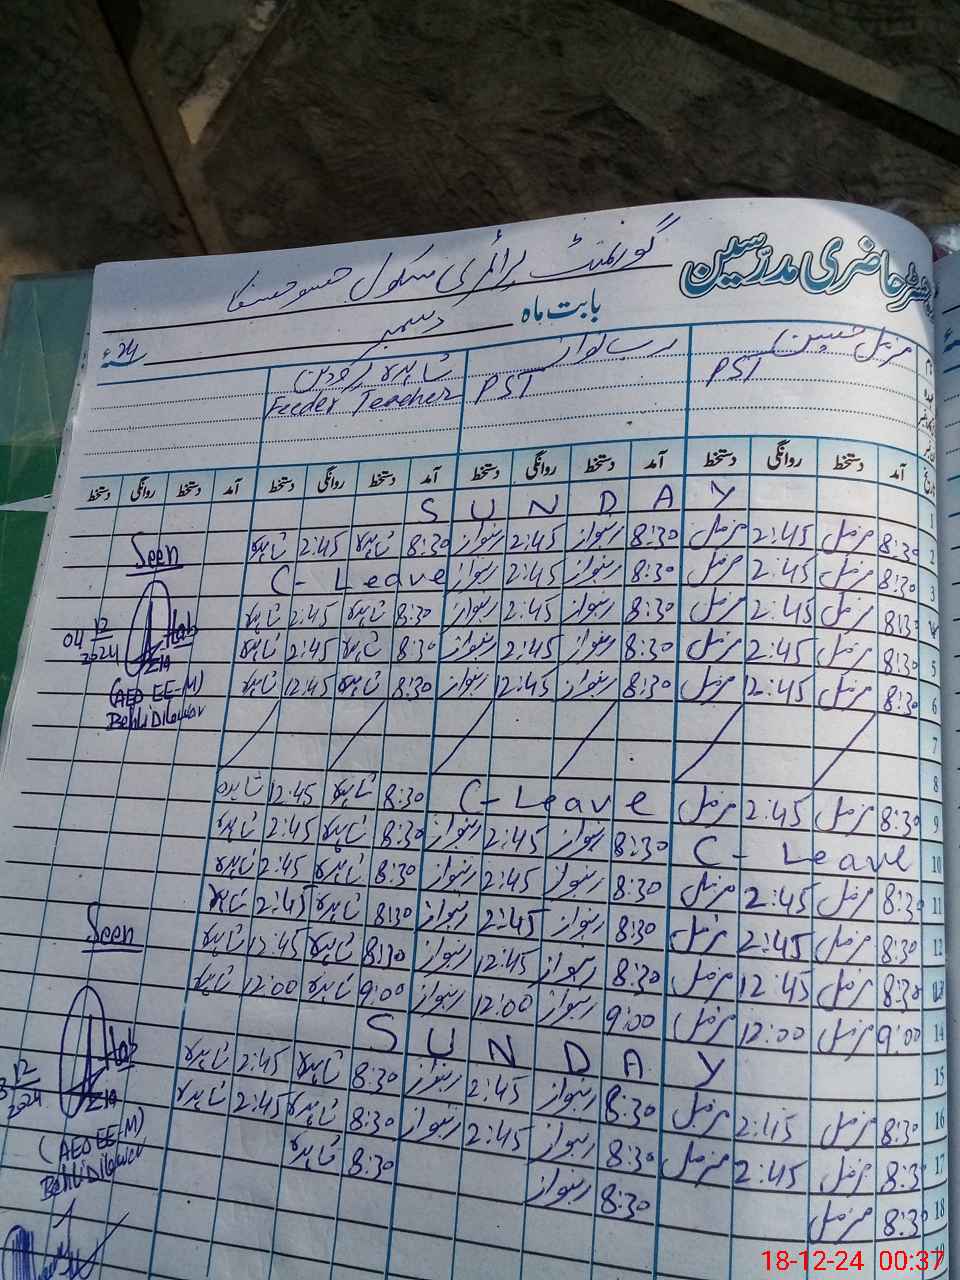 رجسٹر حاضری مدرسین
گورنمنٹ پرائمری سکول
بابت ماہ دسمبر 24ء
مزمل حسین رب نواز شاہدہ
PST PST Feeder Teacher
آمد دستخط روانگی دستخط آمد دستخط روانگی دستخط آمد دستخط روانگی دستخط آمد دستخط روانگی دستخط
1 SUNDAY
2 8:30 مزمل 2:45 مزمل 8:30 ربنواز 2:45 ربنواز 8:30 شاہدہ 2:45 شاہدہ
3 8:30 مزمل 2:45 مزمل 8:30 ربنواز 2:45 ربنواز C-Leave
4 8:30 مزمل 2:45 مزمل 8:30 ربنواز 2:45 ربنواز 8:30 شاہدہ 2:45 شاہدہ
5 8:30 مزمل 2:45 مزمل 8:30 ربنواز 2:45 ربنواز 8:30 شاہدہ 2:45 شاہدہ
6 8:30 مزمل 12:45 مزمل 8:30 ربنواز 12:45 ربنواز 8:30 شاہدہ 12:45 شاہدہ
7
8
9 8:30 مزمل 2:45 مزمل C-Leave 8:30 شاہدہ 2:45 شاہدہ
10 C-Leave 8:30 ربنواز 2:45 ربنواز 8:30 شاہدہ 2:45 شاہدہ
11 8:30 مزمل 2:45 مزمل 8:30 ربنواز 2:45 ربنواز 8:30 شاہدہ 2:45 شاہدہ
12 8:30 مزمل 2:45 مزمل 8:30 ربنواز 2:45 ربنواز 8:30 شاہدہ 2:45 شاہدہ
13 8:30 مزمل 12:45 مزمل 8:30 ربنواز 12:45 ربنواز 8:30 شاہدہ 12:45 شاہدہ
14 9:00 مزمل 12:00 مزمل 9:00 ربنواز 12:00 ربنواز 9:00 شاہدہ 12:00 شاہدہ
15 SUNDAY
16 8:30 مزمل 2:45 مزمل 8:30 ربنواز 2:45 ربنواز 8:30 شاہدہ 2:45 شاہدہ
17 8:30 مزمل 2:45 مزمل 8:30 ربنواز 2:45 ربنواز 8:30 شاہدہ 2:45 شاہدہ
18 8:30 مزمل 8:30 ربنواز 8:30 شاہدہ
Seen
04 12 2024
(AEO EE-M)
Behli Dilawar
Seen
12 2024
(AEO EE-M)
Behli Dilawar
18-12-24 00:37